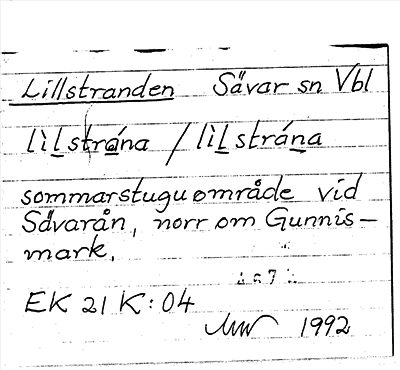 Lillstranden Sävar sn Vbl
lìlstrána / lìlstrána
sommarstuguområde vid
Sävarån, norr om Gunnis-
mark.
EK 21 K:04
1992